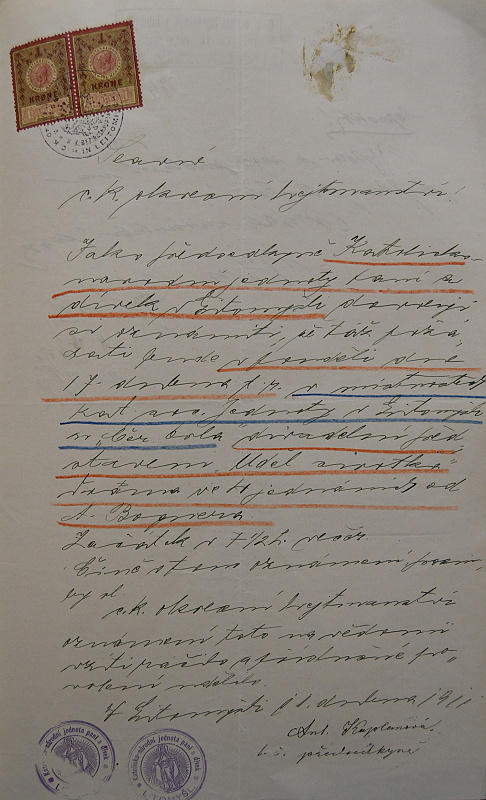 1 1
KRONE KRONE
IN LEITOMI
Slavné
c. k. okresní hejtmanství!
Jako předsedkyně Katolicko-
národní jednoty paní a
dívek v Litomyšli dovoluji
si oznámiti, že táž pořá
dati bude v pondělí dne
17. dubna t. r. v místnostech
kat. jednoty v Litomyšli
u "Čer. Orla" divadelní před
stavení
drama ve 4 jednáních od
A. Bognera.
Začátek v 7 1/2 h. večer.
Činíc o tom oznámení prosím,
by sl.
c. k. okresní hejtmanství
oznámení toto na vědomí
vzíti ráčilo a příslušné po-
volení udělilo.
V Litomyšli 11. dubna 1911
Ant. Kaplanová
t. č. předsedkyně
Katolicko-národní jednota paní a dívek
Katolicko-národní jednota paní a dívek
LITOMYŠL